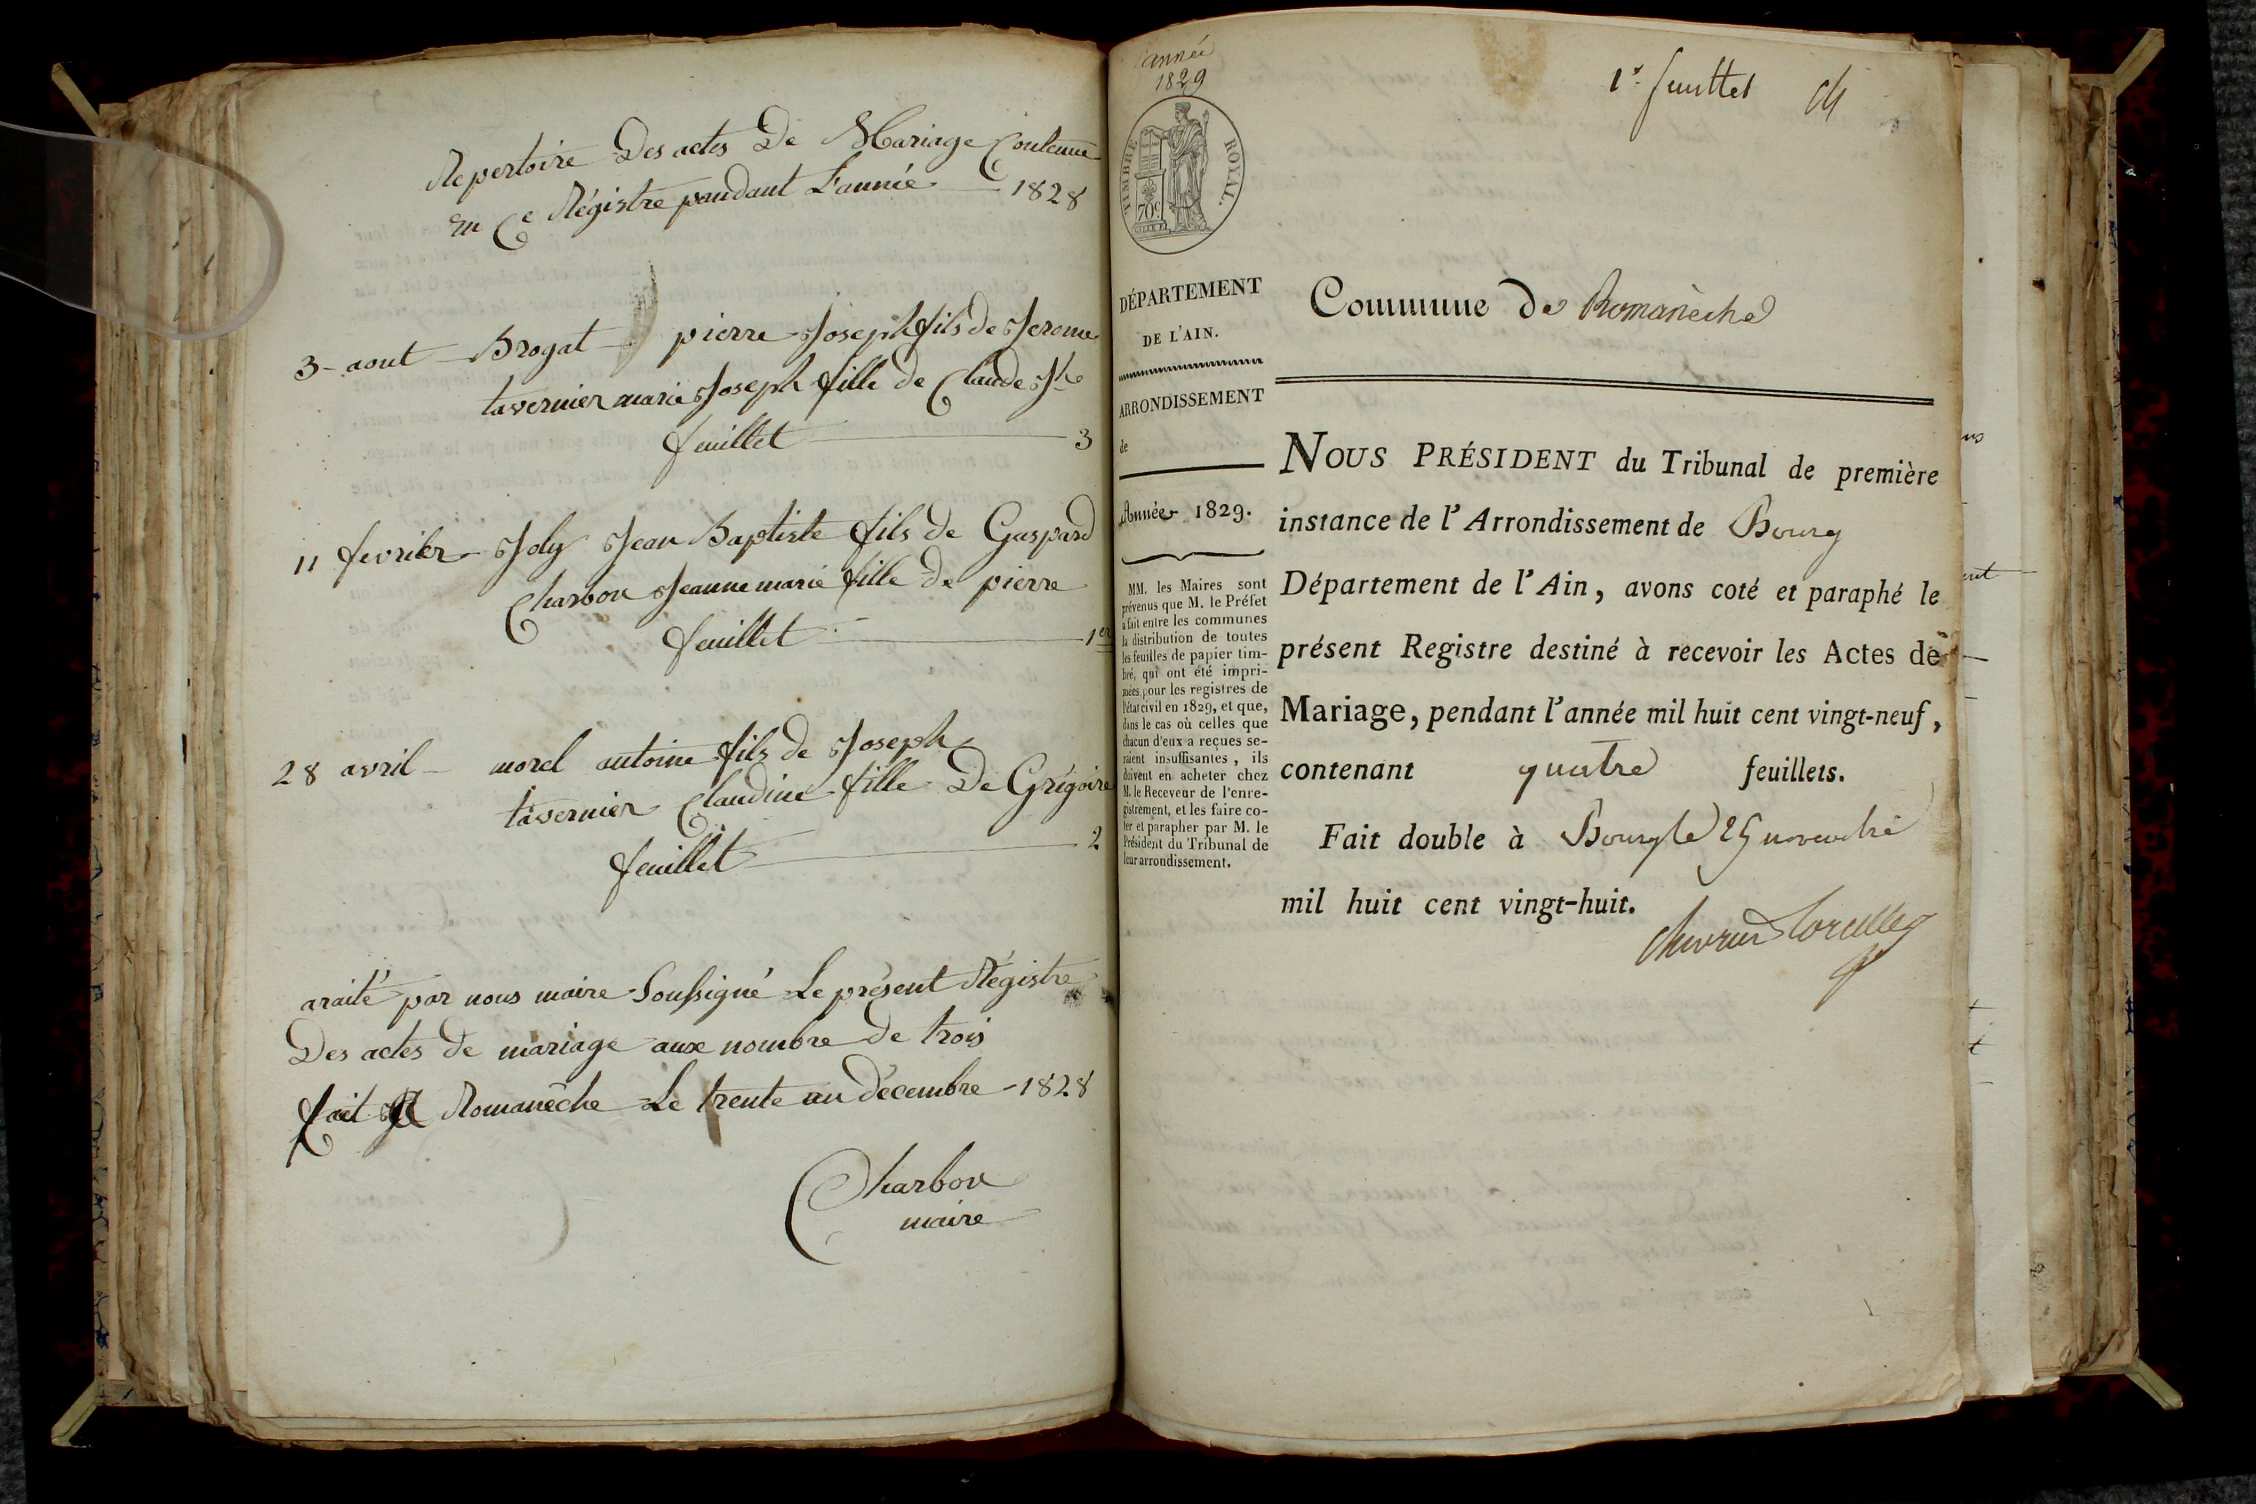 Repertoire Des actes De Mariage Contenue
en Ce Régistre pandant L'année 1828
3 - aout - Brogat pierre Joseph fils de Jerome
tavernier marie Joseph fille de Claude Jh
feuillet 3
11 fevrier - Joly Jean Baptiste fils de Gaspard
Charbon Jeanne marie fille De pierre
feuillet 1er
28 avril - morel antoine fils de Joseph
tavernier Claudine fille De Grégoire
feuillet 2
araité par nous maire Soussigné Le présent Régistre
Des actes de mariage aux nombre de trois
fait a Romanêche Le trente un décembre - 1828
Charbon
maire
année
1829
1r feuillet
TIMBRE ROYAL.
70c
DÉPARTEMENT
DE L'AIN.
ARRONDISSEMENT
de
Année 1829.
MM. les Maires sont
prévenus que M. le Préfet
a fait entre les communes
la distribution de toutes
les feuilles de papier tim-
bré, qui ont été impri-
mées pour les registres de
l'état civil en 1829, et que,
dans le cas où celles que
chacun d'eux a reçues se-
raient insuffisantes, ils
doivent en acheter chez
M. le Receveur de l'enre-
gistrement, et les faire co-
ter et parapher par M. le
Président du Tribunal de
leur arrondissement.
Commune de Romanèche
NOUS PRÉSIDENT du Tribunal de première
instance de l'Arrondissement de Bourg
Département de l'Ain, avons coté et paraphé le
présent Registre destiné à recevoir les Actes de
Mariage, pendant l'année mil huit cent vingt-neuf,
contenant quatre feuillets.
Fait double à Bourg le 25 novembre
mil huit cent vingt-huit.